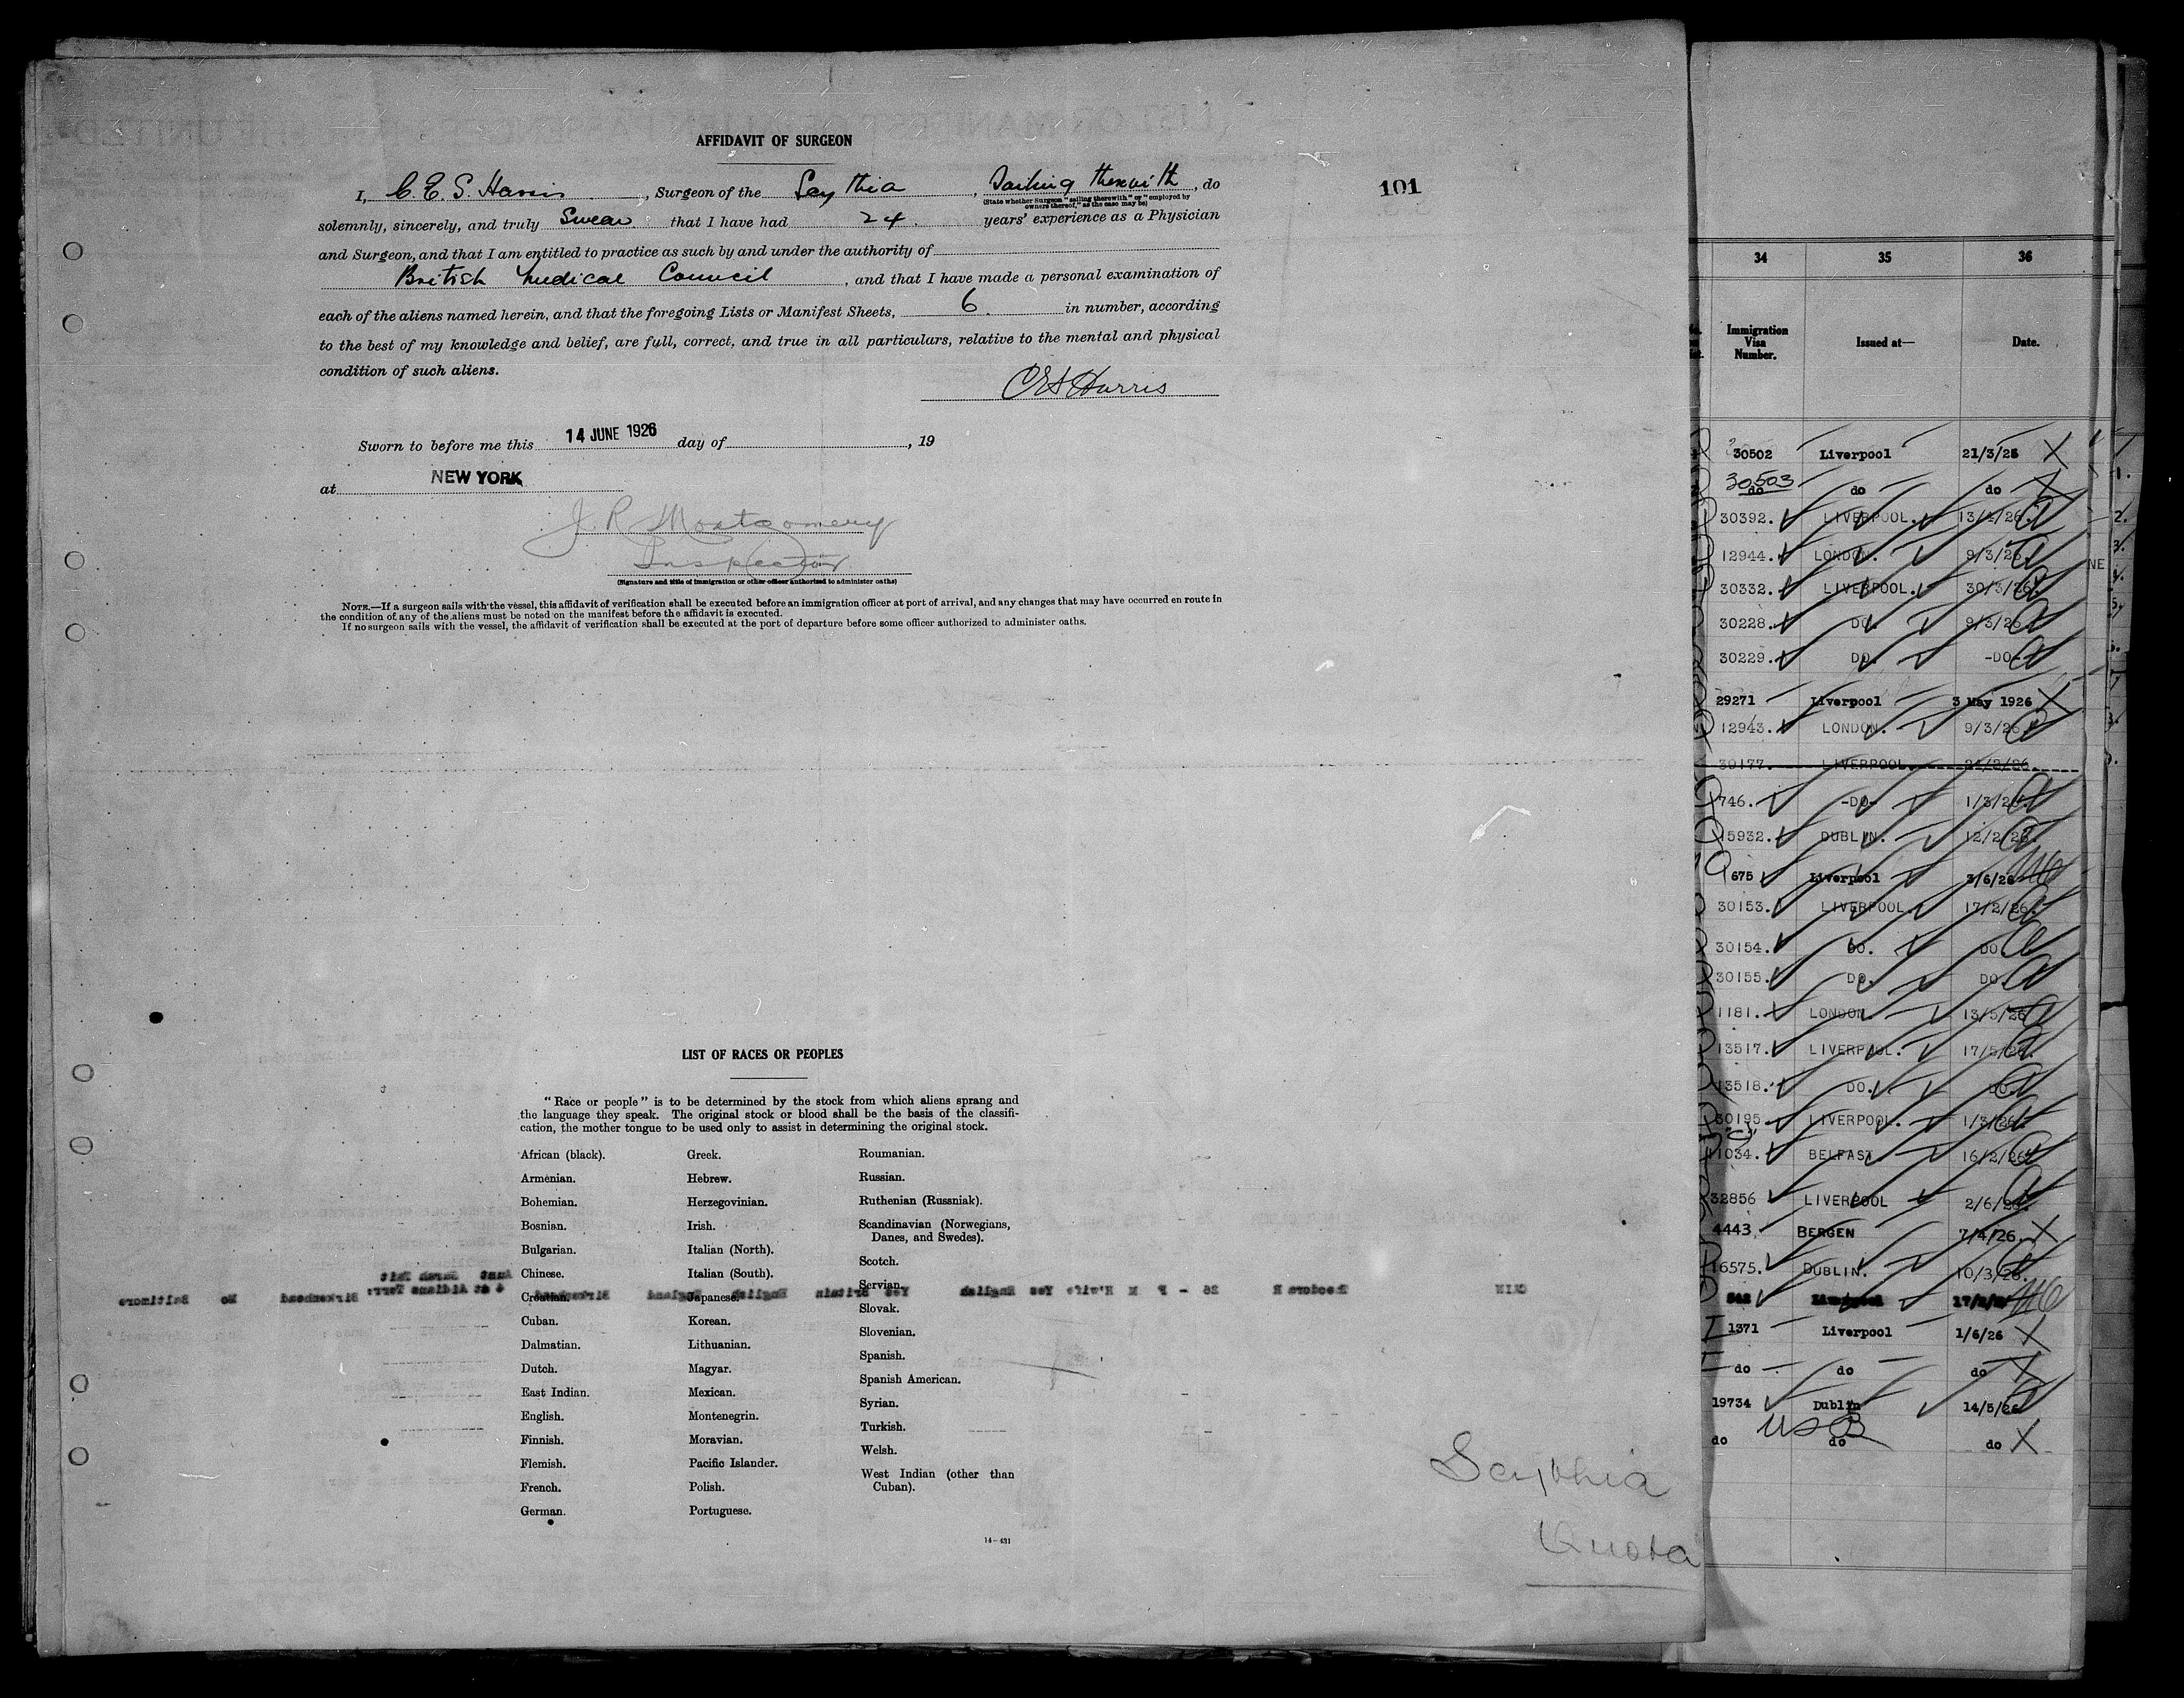 AFFIDAVIT OF SURGEON
I, C. E. S. Harris, Surgeon of the Scythia, Sailing therewith, do
(State whether Surgeon "sailing therewith" or "employed by
owners thereof," as the case may be)
101
solemnly, sincerely, and truly Swear that I have had 24. years' experience as a Physician
and Surgeon, and that I am entitled to practice as such by and under the authority of
British Medical Council, and that I have made a personal examination of
each of the aliens named herein, and that the foregoing Lists or Manifest Sheets, 6. in number, according
to the best of my knowledge and belief, are full, correct, and true in all particulars, relative to the mental and physical
condition of such aliens.
CES Harris
Sworn to before me this 14 JUNE 1926 day of , 19
at NEW YORK
J. R. Montgomery
Inspector
(Signature and title of immigration or other officer authorized to administer oaths)
NOTE.—If a surgeon sails with the vessel, this affidavit of verification shall be executed before an immigration officer at port of arrival, and any changes that may have occurred en route in
the condition of any of the aliens must be noted on the manifest before the affidavit is executed.
If no surgeon sails with the vessel, the affidavit of verification shall be executed at the port of departure before some officer authorized to administer oaths.
LIST OF RACES OR PEOPLES
"Race or people" is to be determined by the stock from which aliens sprang and
the language they speak. The original stock or blood shall be the basis of the classifi-
cation, the mother tongue to be used only to assist in determining the original stock.
African (black).
Armenian.
Bohemian.
Bosnian.
Bulgarian.
Chinese.
Croatian.
Cuban.
Dalmatian.
Dutch.
East Indian.
English.
Finnish.
Flemish.
French.
German.
Greek.
Hebrew.
Herzegovinian.
Irish.
Italian (North).
Italian (South).
Japanese.
Korean.
Lithuanian.
Magyar.
Mexican.
Montenegrin.
Moravian.
Pacific Islander.
Polish.
Portuguese.
Roumanian.
Russian.
Ruthenian (Russniak).
Scandinavian (Norwegians,
Danes, and Swedes).
Scotch.
Servian.
Slovak.
Slovenian.
Spanish.
Spanish American.
Syrian.
Turkish.
Welsh.
West Indian (other than
Cuban).
14-431
Scythia
Quota
34 35 36
Immigration
Visa
Number.
Issued at—
Date.
30502 Liverpool 21/3/26 X
30503
do do do X
30392. LIVERPOOL. 13/4/26.
12944. LONDON. 9/3/26.
30332. LIVERPOOL. 30/3/26.
30228. DO. 9/3/26.
30229. DO. -DO-
29271 Liverpool 3 May 1926 X
12943. LONDON. 9/3/26.
30177. LIVERPOOL.
746. -DO- 1/3/26.
15932. DUBLIN. 12/2/26.
675 Liverpool 3/6/26
30153. LIVERPOOL. 17/2/26.
30154. DO. DO.
30155. DO. DO.
1181. LONDON. 13/5/26.
13517. LIVERPOOL. 17/5/26.
13518. DO. DO.
30195. LIVERPOOL. 1/3/26.
11034. BELFAST. 16/2/26.
32856 LIVERPOOL 2/6/26.
4443. BERGEN 7/4/26. X
16575. DUBLIN. 10/3/26.
Liverpool
1371 Liverpool 1/6/26 X
do do do X
19734 Dublin 14/5/26
do do do X